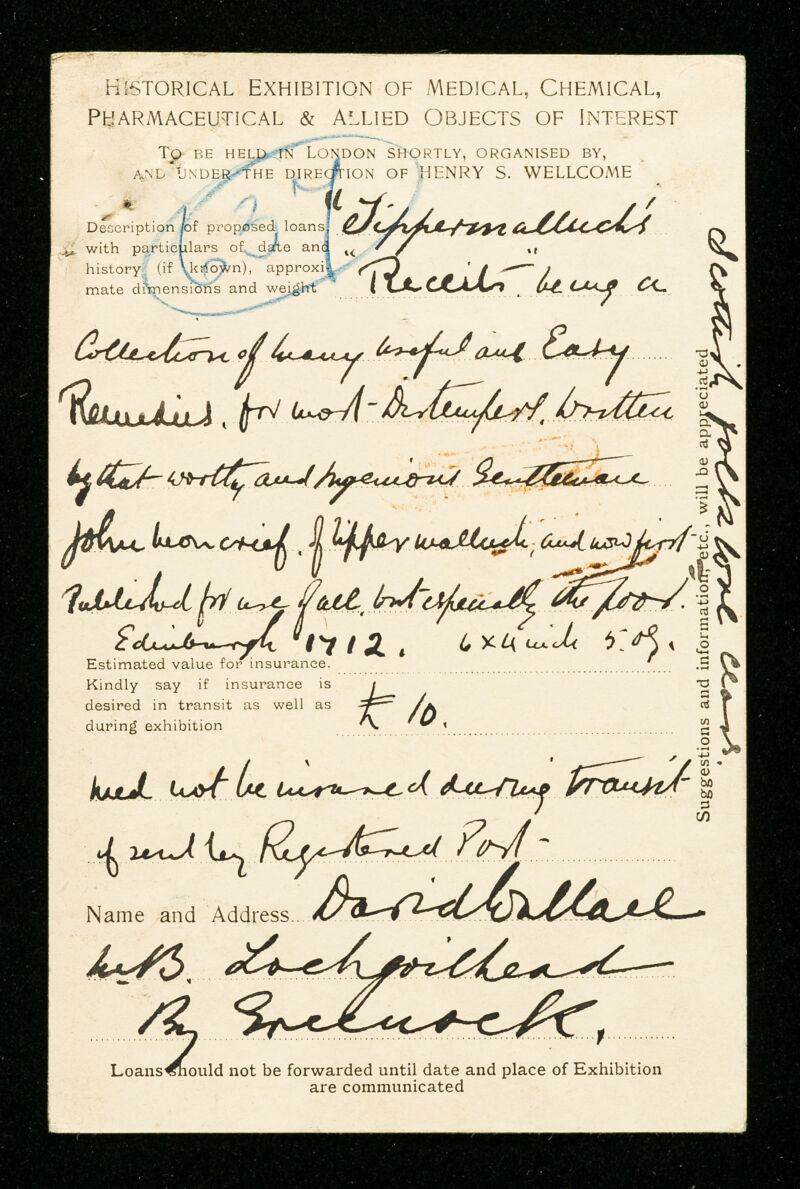 HISTORICAL EXHIBITION OF MEDICAL, CHEMICAL,
PHARMACEUTICAL & ALLIED OBJECTS OF INTEREST
TO BE HELD IN LONDON SHORTLY, ORGANISED BY,
AND UNDER THE DIRECTION OF HENRY S. WELLCOME
637
Description of proposed loans,
with particulars of date and
history (if known), approxi-
mate dimensions and weight
"Tippermalluch's
"Receits" being a
Collection of many useful and Easy
Remedies, for most Distempers, written
by that worthy and Ingenious Gentleman
John Moncrief, of Tippermalluch, and now first
Published for use of all, but especially the poor.
Edinburgh 1712. 6 x 4 inch 5. oz.
Estimated value for insurance.
Kindly say if insurance is
desired in transit as well as
during exhibition
£ 10.
need not be insured during transit
if sent by Registered Post
Name and Address David Wallace
M.B. Lochgoilhead
By Greenock.
Loans should not be forwarded until date and place of Exhibition
are communicated
Suggestions and information, etc., will be appreciated
Scottish folk lore